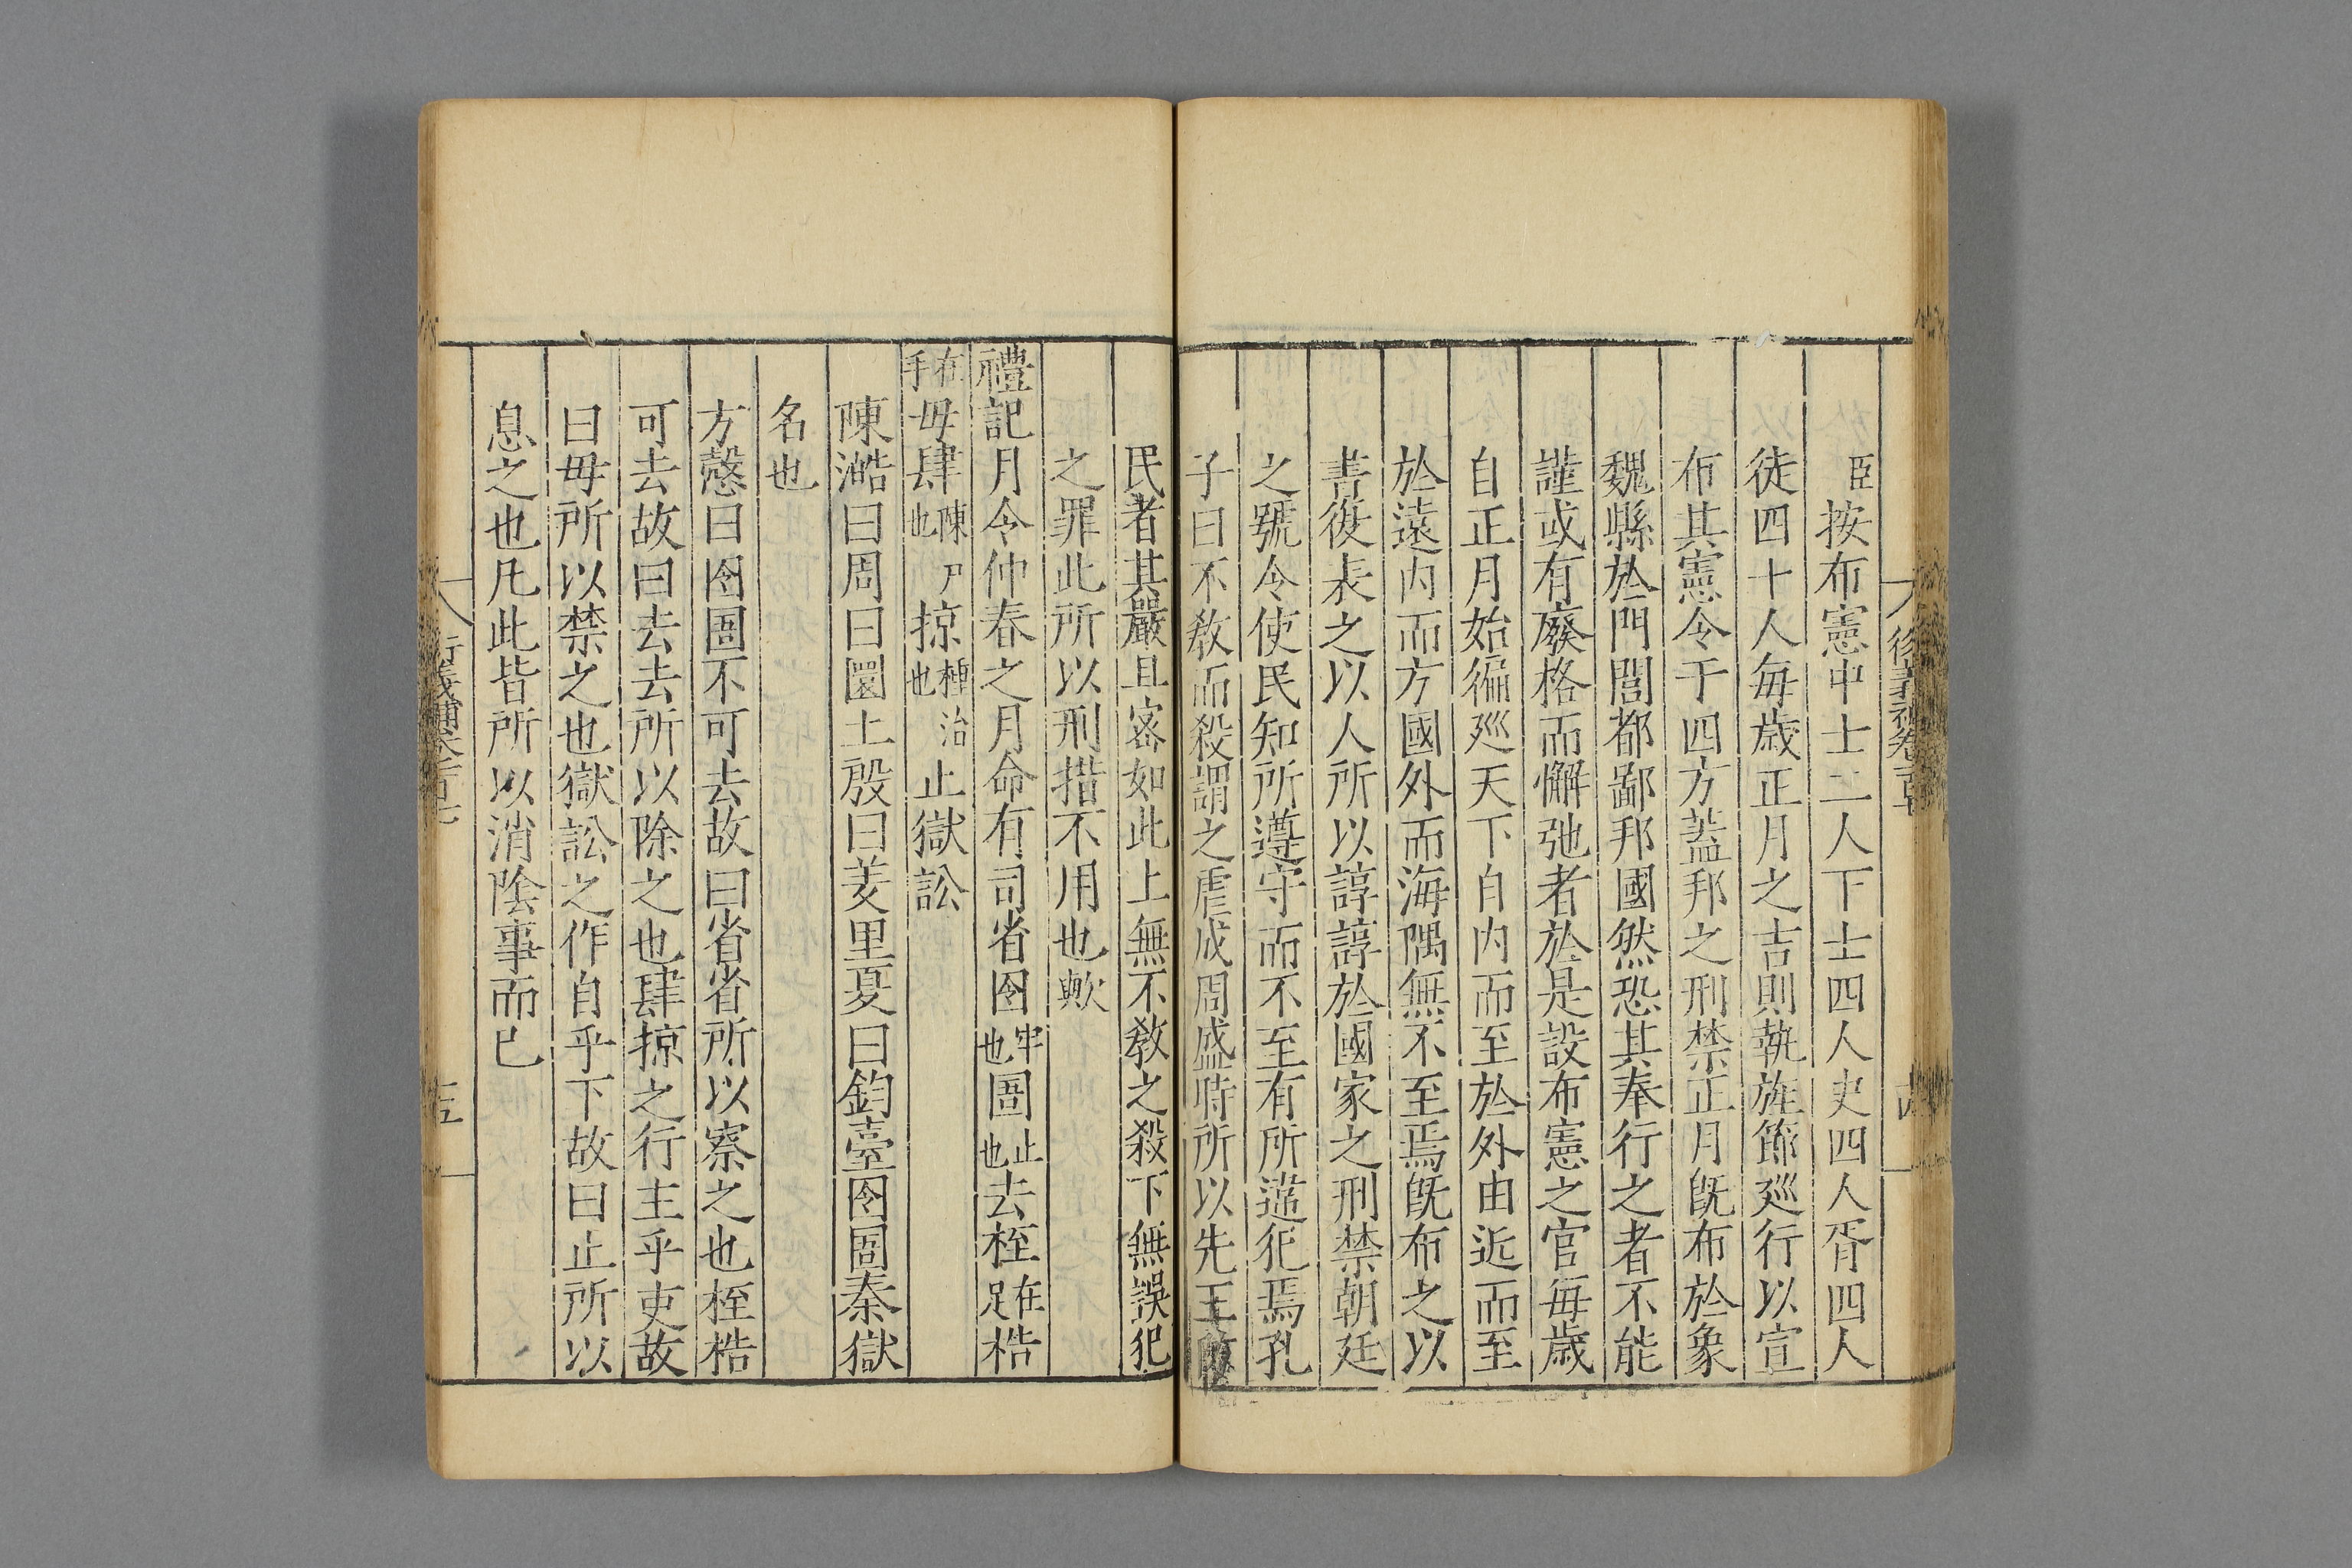 臣按布憲中士二人下士四人史四人胥四人
徒四十人毎歲正月之吉則執旌節廵行以宣
布其憲令于四方蓋邦之刑禁正月旣布於象
魏縣於門閭都鄙邦國然恐其奉行之者不能
謹或有廢格而懈弛者於是設布憲之官毎歲
自正月始徧廵天下自内而至於外由近而至
於遠内而方國外而海隅無不至焉旣布之以
書復表之以人所以諄諄於國家之刑禁朝廷
之號令使民知所遵守而不至有所違犯焉孔
子曰不敎而殺謂之虐成周盛時所以先王
民者其嚴且宻如此上無不敎之殺下無誤犯
之罪此所以刑措不用也歟
禮記月令仲春之月命有司省囹牢也圄止也去桎在足梏
在手毋肆陳尸也掠棰治也止獄訟
陳澔曰周曰圜土殷曰羑里夏曰鈞臺囹圄秦獄
名也
方慤曰囹圄不可去故曰省省所以察之也桎梏
可去故曰去去所以除之也肆掠之行主乎吏故
曰毋所以禁之也獄訟之作自乎下故曰止所以
息之也凡此皆所以消陰事而已